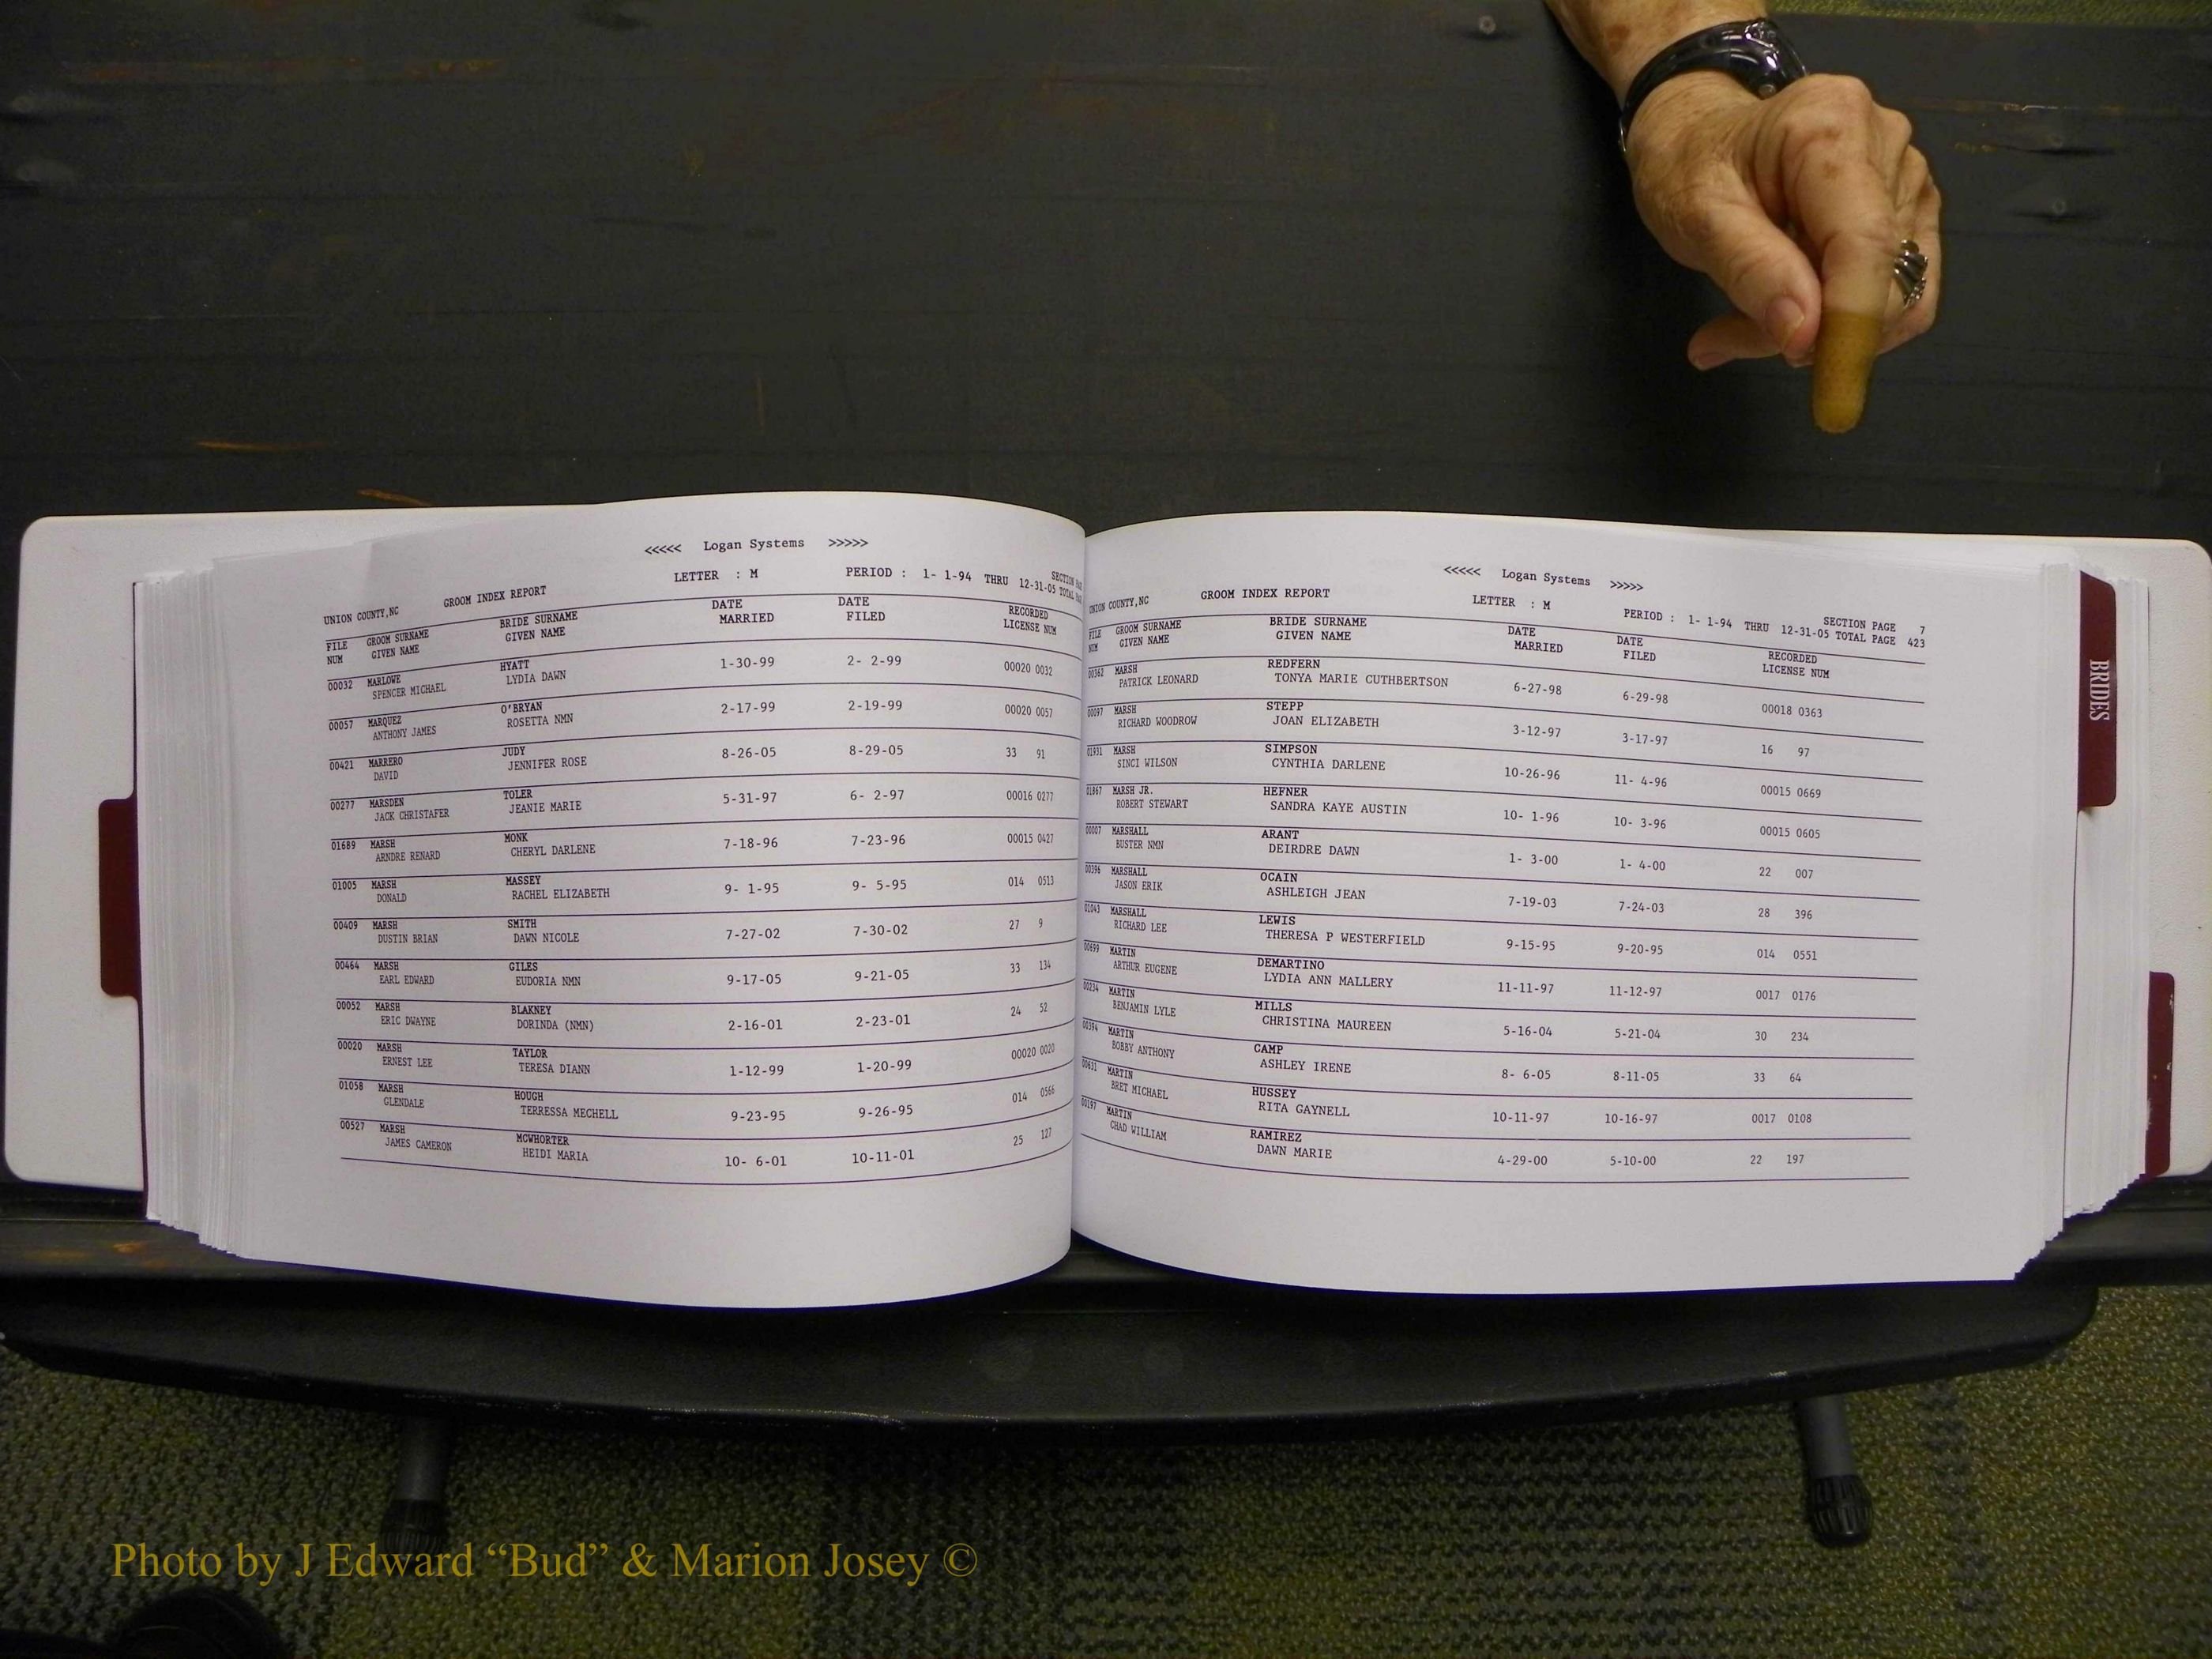 <<<<< Logan Systems >>>>>
LETTER : M PERIOD : 1- 1-94 THRU 12-31-05 TOTAL
SECTION
UNION COUNTY,NC GROOM INDEX REPORT
FILE GROOM SURNAME BRIDE SURNAME DATE DATE RECORDED
NUM GIVEN NAME GIVEN NAME MARRIED FILED LICENSE NUM
00032 MARLOWE HYATT 1-30-99 2- 2-99 00020 0032
SPENCER MICHAEL LYDIA DAWN
00057 MARQUEZ O'BRYAN 2-17-99 2-19-99 00020 0057
ANTHONY JAMES ROSETTA NMN
00421 MARRERO JUDY 8-26-05 8-29-05 33 91
DAVID JENNIFER ROSE
00277 MARSDEN TOLER 5-31-97 6- 2-97 00016 0277
JACK CHRISTAFER JEANIE MARIE
01689 MARSH MONK 7-18-96 7-23-96 00015 0427
ARNDRE RENARD CHERYL DARLENE
01005 MARSH MASSEY 9- 1-95 9- 5-95 014 0513
DONALD RACHEL ELIZABETH
00409 MARSH SMITH 7-27-02 7-30-02 27 9
DUSTIN BRIAN DAWN NICOLE
00464 MARSH GILES 9-17-05 9-21-05 33 134
EARL EDWARD EUDORIA NMN
00052 MARSH BLAKNEY 2-16-01 2-23-01 24 52
ERIC DWAYNE DORINDA (NMN)
00020 MARSH TAYLOR 1-12-99 1-20-99 00020 0020
ERNEST LEE TERESA DIANN
01058 MARSH HOUGH 9-23-95 9-26-95 014 0566
GLENDALE TERRESSA MECHELL
00527 MARSH MCWHORTER 10- 6-01 10-11-01 25 127
JAMES CAMERON HEIDI MARIA
<<<<< Logan Systems >>>>>
UNION COUNTY,NC GROOM INDEX REPORT LETTER : M PERIOD : 1- 1-94 THRU 12-31-05 TOTAL PAGE 423
SECTION PAGE 7
FILE GROOM SURNAME BRIDE SURNAME DATE DATE RECORDED
NUM GIVEN NAME GIVEN NAME MARRIED FILED LICENSE NUM
00362 MARSH REDFERN 6-27-98 6-29-98 00018 0363
PATRICK LEONARD TONYA MARIE CUTHBERTSON
00097 MARSH STEPP 3-12-97 3-17-97 16 97
RICHARD WOODROW JOAN ELIZABETH
01931 MARSH SIMPSON 10-26-96 11- 4-96 00015 0669
SINCI WILSON CYNTHIA DARLENE
01867 MARSH JR. HEFNER 10- 1-96 10- 3-96 00015 0605
ROBERT STEWART SANDRA KAYE AUSTIN
00007 MARSHALL ARANT 1- 3-00 1- 4-00 22 007
BUSTER NMN DEIRDRE DAWN
00396 MARSHALL OCAIN 7-19-03 7-24-03 28 396
JASON ERIK ASHLEIGH JEAN
01043 MARSHALL LEWIS 9-15-95 9-20-95 014 0551
RICHARD LEE THERESA P WESTERFIELD
00699 MARTIN DEMARTINO 11-11-97 11-12-97 0017 0176
ARTHUR EUGENE LYDIA ANN MALLERY
00234 MARTIN MILLS 5-16-04 5-21-04 30 234
BENJAMIN LYLE CHRISTINA MAUREEN
00394 MARTIN CAMP 8- 6-05 8-11-05 33 64
BOBBY ANTHONY ASHLEY IRENE
00631 MARTIN HUSSEY 10-11-97 10-16-97 0017 0108
BRET MICHAEL RITA GAYNELL
00197 MARTIN RAMIREZ 4-29-00 5-10-00 22 197
CHAD WILLIAM DAWN MARIE
BRIDES
Photo by J Edward “Bud” & Marion Josey ©